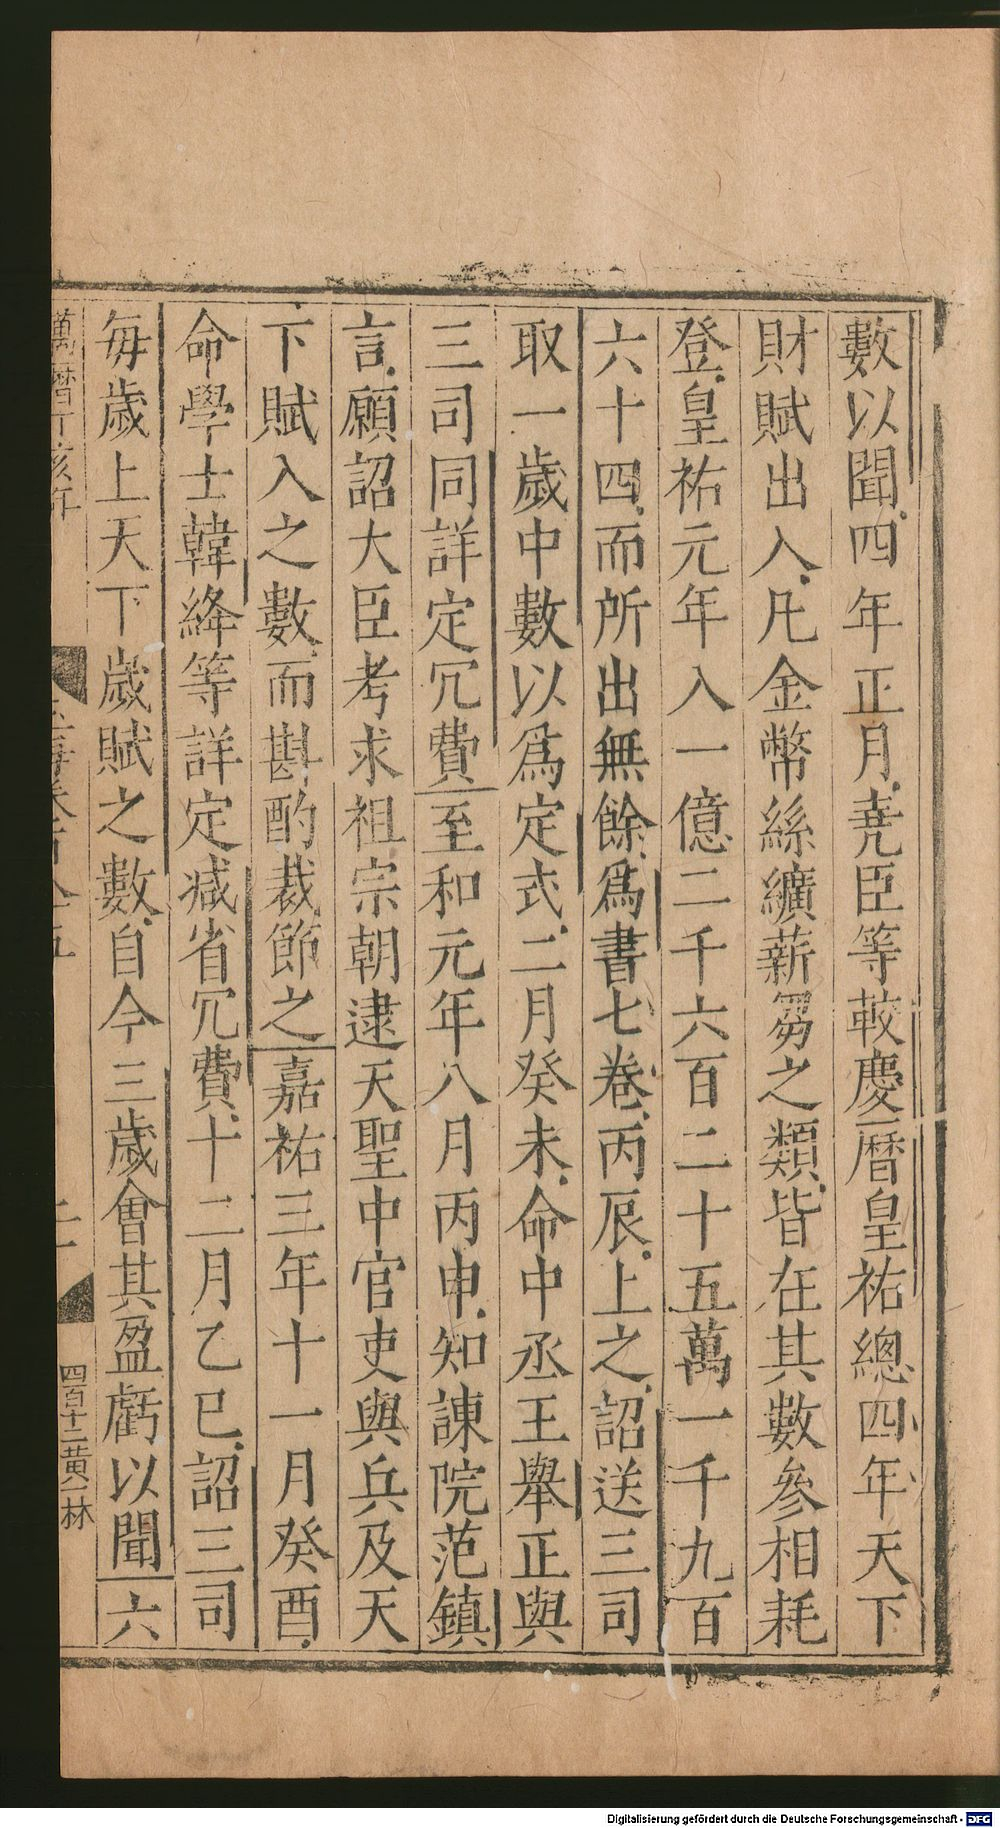 數以聞四年正月尭臣等較慶曆皇祐總四年天下
財賦出入凡金幣絲纊薪芻之類皆在其數參相耗
登皇祐元年入一億二千六百二十五萬一千九百
六十四而所出無餘爲書七卷丙辰上之詔送三司
取一歲中數以爲定式二月癸未命中丞王舉正與
三司同詳定冗費至和元年八月丙申知諫院范鎮
言願詔大臣考求祖宗朝逮天聖中官吏與兵及天
下賦入之數而斟酌裁節之嘉祐三年十一月癸酉
命學士韓絳等詳定减省冗費十二月乙巳詔三司
每歲上天下歲賦之數自今三歲會其盈虧以聞六
萬曆丁亥年
玉海卷百八十五
四百十二黄一林
Digitalisierung gefördert durch die Deutsche Forschungsgemeinschaft - DFG